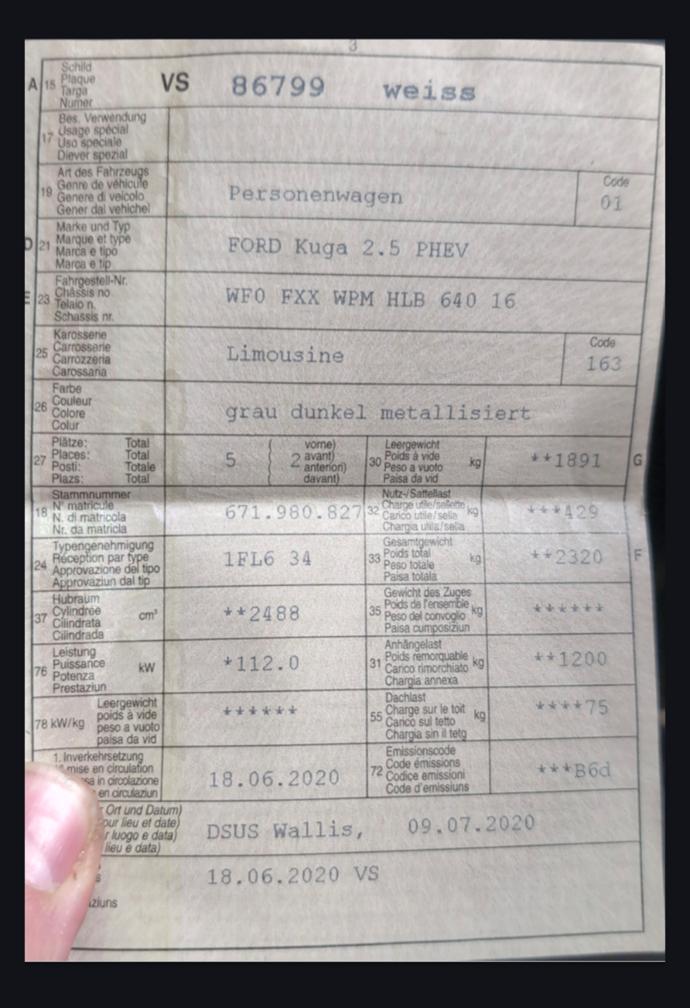 3
A 15 Schild
Plaque
Targa
Numer
VS 86799 weiss
17 Bes. Verwendung
Usage spécial
Uso speciale
Diever spezial
19 Art des Fahrzeugs
Genre de véhicule
Genere di veicolo
Gener dal vehichel
Personenwagen
Code
01
D 21 Marke und Typ
Marque et type
Marca e tipo
Marca e tip
FORD Kuga 2.5 PHEV
E 23 Fahrgestell-Nr.
Châssis no
Telaio n.
Schassis nr.
WF0 FXX WPM HLB 640 16
25 Karosserie
Carrosserie
Carrozzeria
Carossaria
Limousine
Code
163
26 Farbe
Couleur
Colore
Colur
grau dunkel metallisiert
27 Plätze: Total
Places: Total
Posti: Totale
Plazs: Total
5 ( 2 vorne)
avant)
anteriori)
davant)
30 Leergewicht
Poids à vide
Peso a vuoto
Paisa da vid
kg
**1891 G
18 Stammnummer
N° matricule
N. di matricola
Nr. da matricla
671.980.827
32 Nutz-/Sattellast
Charge utile/sellette
Carico utile/sella
Chargia utila/sella
kg
***429
24 Typengenehmigung
Réception par type
Approvazione del tipo
Approvaziun dal tip
1FL6 34
33 Gesamtgewicht
Poids total
Peso totale
Paisa totala
kg
**2320 F
37 Hubraum
Cylindrée
Cilindrata
Cilindrada
cm³
**2488
35 Gewicht des Zuges
Poids de l'ensemble
Peso del convoglio
Paisa cumposiziun
kg
******
76 Leistung
Puissance
Potenza
Prestaziun
kW
*112.0
31 Anhängelast
Poids remorquable
Carico rimorchiato
Chargia annexa
kg
**1200
78 kW/kg Leergewicht
poids à vide
peso a vuoto
paisa da vid
******
55 Dachlast
Charge sur le toit
Carico sul tetto
Chargia sin il tetg
kg
****75
1. Inverkehrsetzung
mise en circulation
sa in circolazione
en circulaziun
18.06.2020
72 Emissionscode
Code émissions
Codice emissioni
Code d'emissiuns
***B6d
Ort und Datum)
our lieu et date)
r luogo e data)
lieu e data)
DSUS Wallis, 09.07.2020
18.06.2020 VS
aziuns